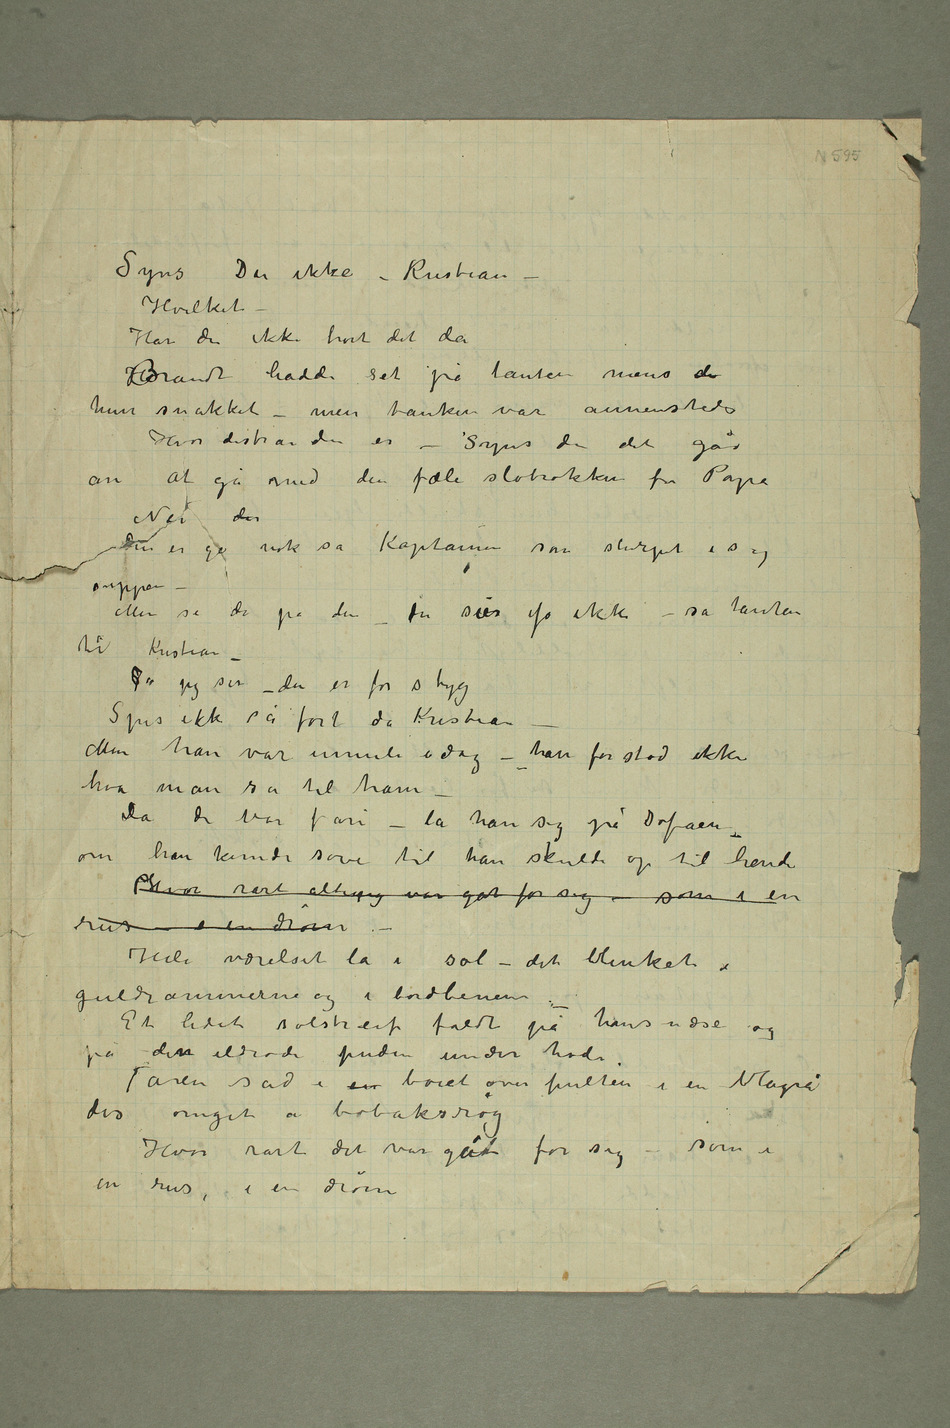 N 595
Syns Du ikke – Kristian –
Hvilket –
Har du ikke hørt det da
Brandt hadde set på tanten mens du
hun snakket – men tanken var annensteds
Hvor distrai du er – Syns du det går
an at gå med den fæle slobrokken for Papa
Nei du
Den er go nok sa Kaptainen som slurpet i sig
suppen –
Men se da på den – du sier jo ikke – sa tanten
til Kristian –
Ja jeg ser – den er for styg
Spis ikke så fort da Kristian –
Men han var umuli idag – han forstod ikke
hva man sa til ham –
Da de var færi – la han sig på Sofaen –
om han kunde sove til han skulde op til hende
Hvor rart alting var gåt for sig – som i en
rus – i en drøm –
Hele værelset lå i sol – det blinket i
guldrammerne og i bordbenene –
Et lidet solstreif faldt på hans næse og
på den ildrøde puden under hode.
Faren sad i en bøiet over pulten i en blågrå
dis omget a tobaksrøg
Hvor rart det var gåt for sig – som i
en rus, i en drøm